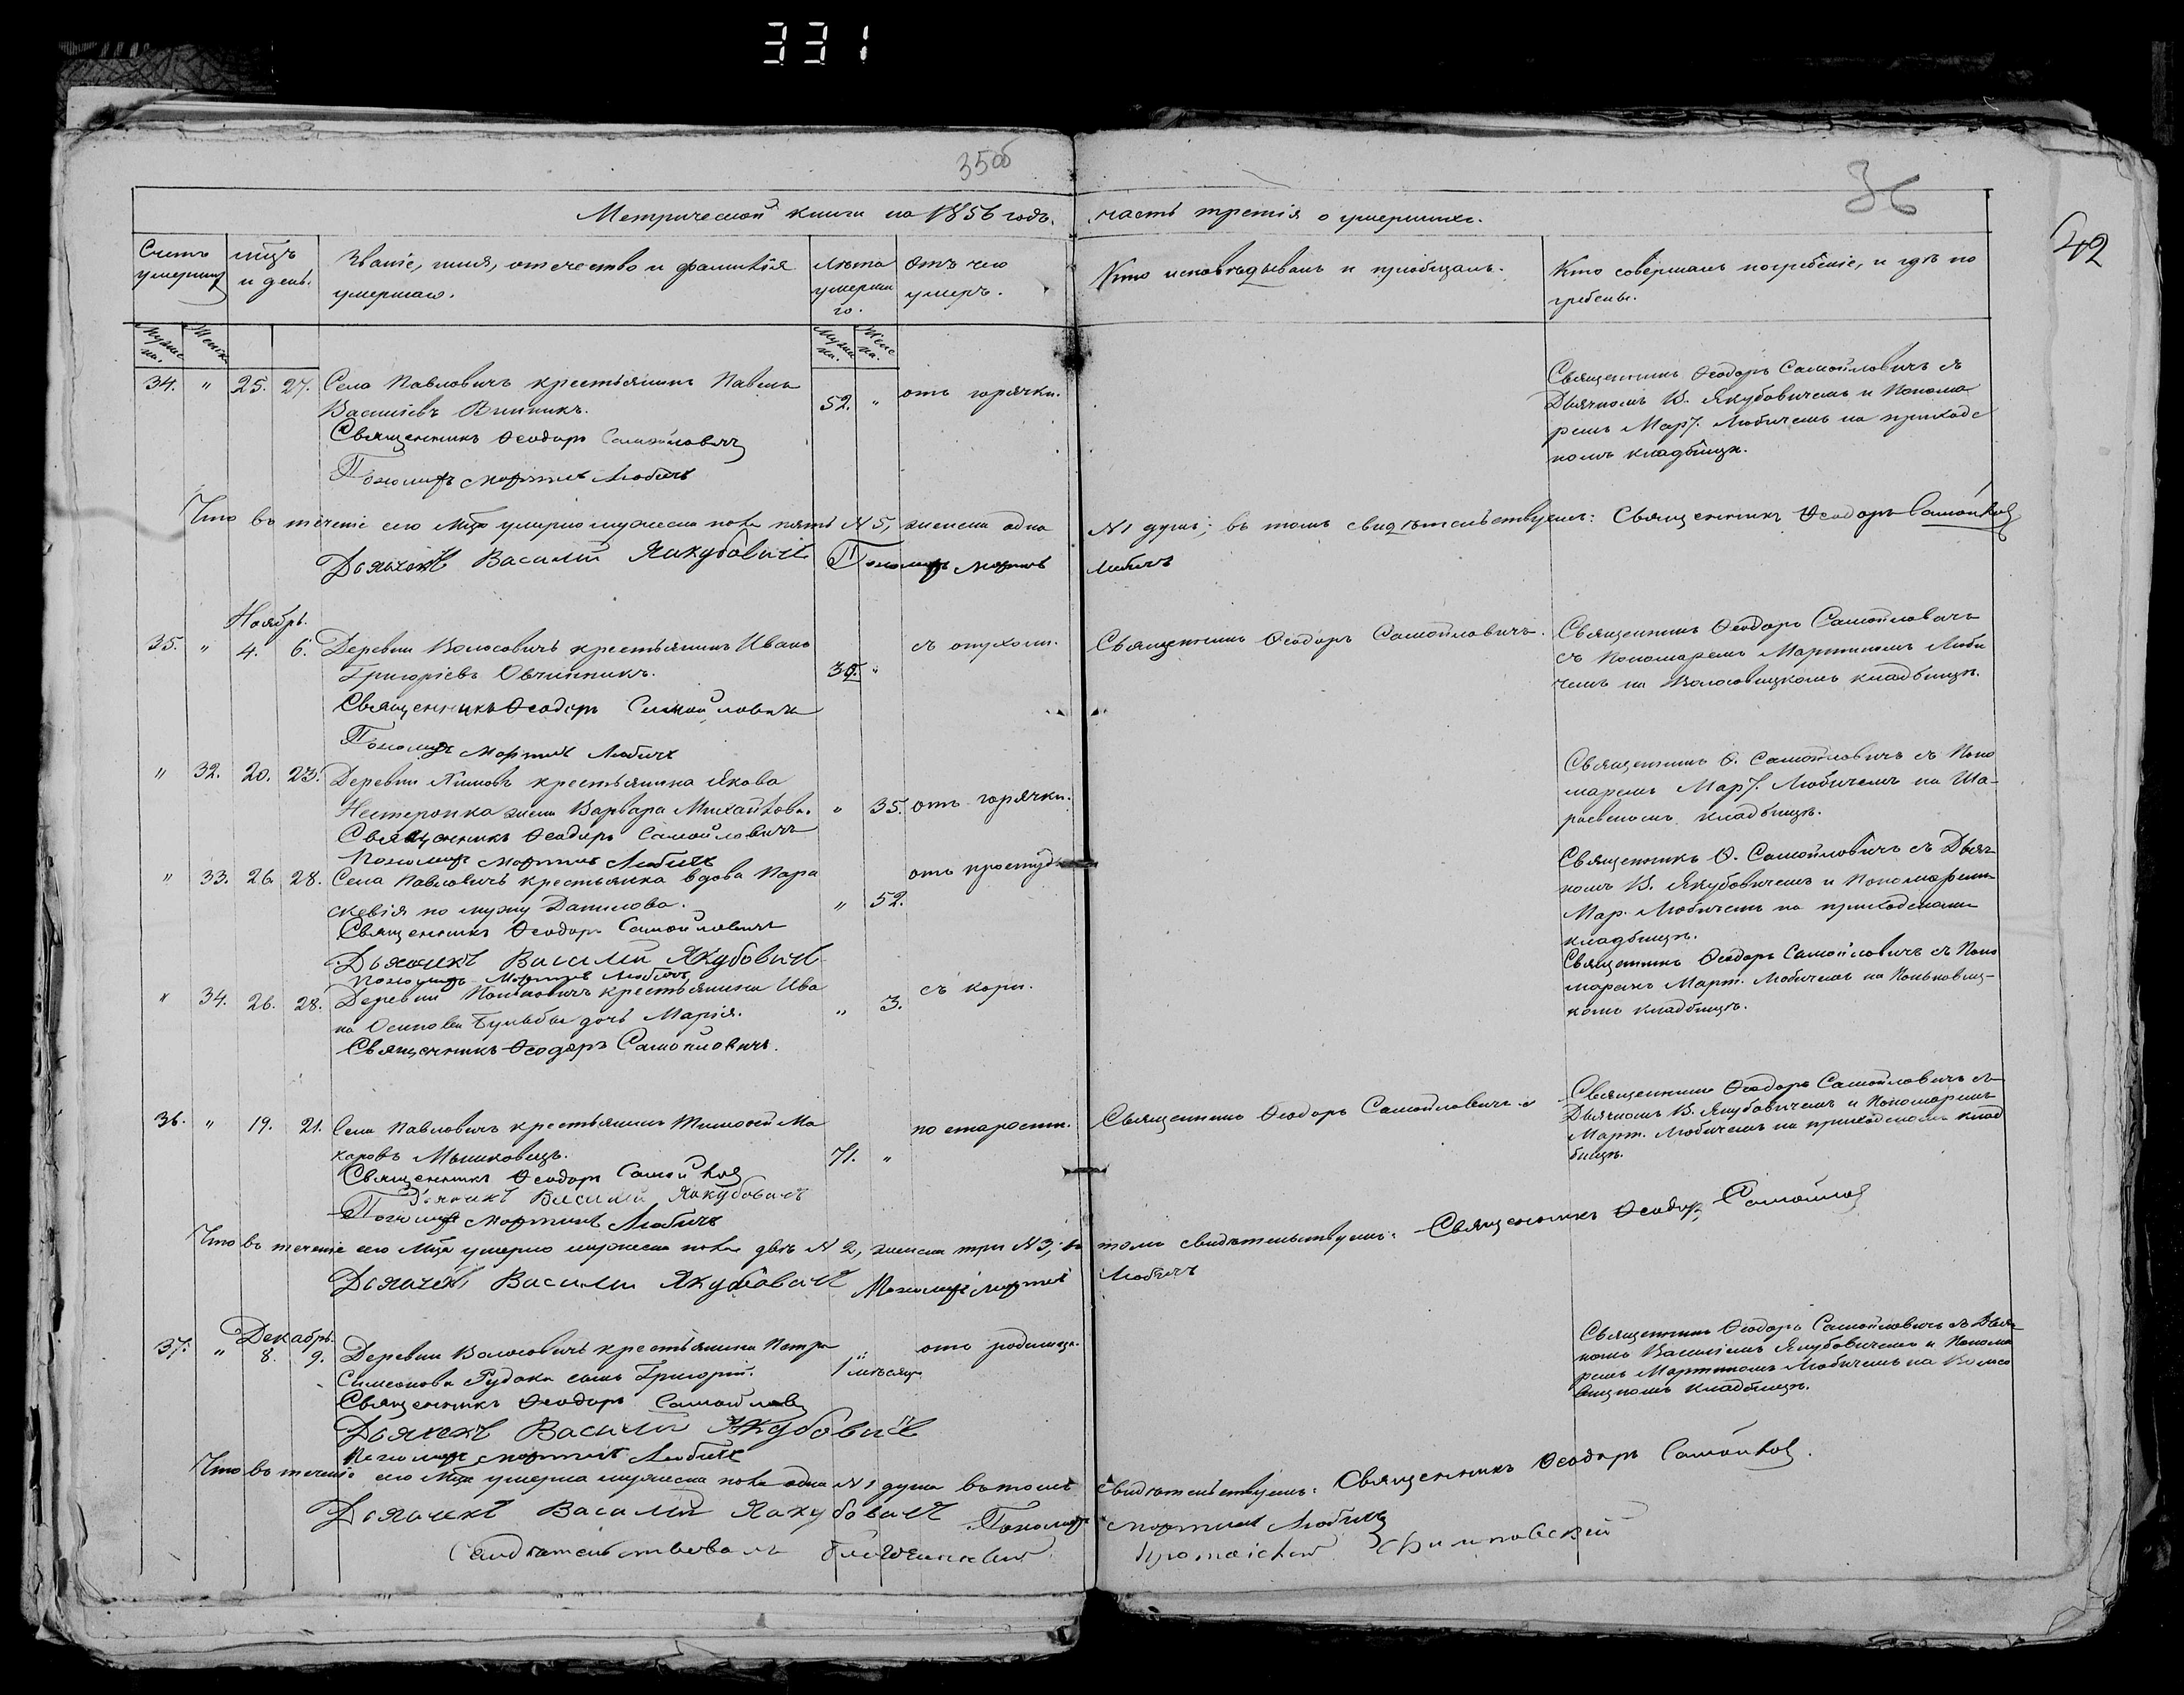 331
35об
36
42
Метрической книги на 1856 годъ. часть третія о умершихъ.
Счетъ умершихъ
мцъ и день.
Званіе, имя, отечество и фамилія умершаго.
лѣта умерша го.
Отъ чего умеръ.
Кто исповѣдывалъ и пріобщалъ.
Кто совершалъ погребеніе, и гдѣ по гребены.
Муже ка.
Женск
Муже ка.
Женс ка.
34. " 25. 27. Села Павловичъ крестьянинъ Павелъ
Василіевъ Винникъ. 52. " отъ горячки.
Священникъ Ѳеодоръ Самойловичъ
Пономарь Мартинъ Любичъ
Священникъ Ѳеодоръ Самойловичъ съ
Дьячкомъ В. Якубовичемъ и Понома
ремъ Март. Любичемъ на приходс
комъ кладбищѣ.
Что въ теченіе сего Мца умерло мужеска пола пять N 5, женска одна N 1 душъ; въ томъ свидѣтельствуемъ: Священникъ Ѳеодоръ Самойлов
Дьячекъ Василій Якубовичъ Пономарь Мартинъ Любичъ
Ноябрь.
35. " 4. 6. Деревни Волосовичъ крестьянинъ Иванъ
Григоріевъ Овчинникъ. " съ опухоли.
Священникъ Ѳеодоръ Самойловичъ
Пономарь Мартинъ Любичъ
Священникъ Ѳеодоръ Самойловичъ.
Священникъ Ѳеодоръ Самойловичъ
съ Пономаремъ Мартиномъ Люби
чемъ на Волосовицкомъ кладбищѣ.
" 32. 20. 23. Деревни крестьянина Якова
Нестеронка жена Варвара Михайлова. " 35. отъ горячки.
Священникъ Ѳеодоръ Самойловичъ
Пономарь Мартинъ Любичъ
Священникъ Ѳ. Самойловичъ съ Поно
маремъ Март. Любичемъ на
кладбищѣ.
" 33. 26. 28. Села Павловичъ крестьянка вдова Пара
скевія по мужу Данилова. " 52. отъ простуды
Священникъ Ѳеодоръ Самойловичъ
Дьячекъ Василій Якубовичъ
Пономарь Мартинъ Любичъ
Священникъ Ѳ. Самойловичъ съ Дьяч
комъ В. Якубовичемъ и Пономаремъ
Мар. Любичемъ на приходскомъ
кладбищѣ.
" 34. 26. 28. Деревни крестьянина Ива
на Осипова Бульбы дочь Марія. " 3. съ кори.
Священникъ Ѳеодоръ Самойловичъ.
Священникъ Ѳеодоръ Самойловичъ съ Поно
маремъ Март. Любичемъ на
комъ кладбищѣ.
36. " 19. 21. Села Павловичъ крестьянинъ Тимоѳей Ма
каровъ Мышковецъ. 71. " по старости.
Священникъ Ѳеодоръ Самойлов
Дьячекъ Василій Якубовичъ
Пономарь Мартинъ Любичъ
Священникъ Ѳеодоръ Самойловичъ
Священникъ Ѳеодоръ Самойловичъ съ
Дьячкомъ В. Якубовичемъ и Пономаремъ
Март. Любичемъ на приходскомъ клад
бищѣ.
Что въ теченіе сего Мца умерло мужеска пола двѣ N 2, женска три N 3; въ томъ свидѣтельствуемъ: Священникъ Ѳеодоръ Самойлов
Дьячекъ Василій Якубовичъ Пономарь Мартинъ Любичъ
Декабрь.
37. " 8. 9. Деревни Волосовичъ крестьянина Петра
Симеонова Рудака сынъ Григорій. 1 мѣсяцъ " отъ родимца.
Священникъ Ѳеодоръ Самойлов
Дьячекъ Василій Якубовичъ
Пономарь Мартинъ Любичъ
Священникъ Ѳеодоръ Самойловичъ съ Дьяч
комъ Василіемъ Якубовичемъ и Понома
ремъ Мартиномъ Любичемъ на Волосо
вицкомъ кладбищѣ.
Что въ теченіе сего Мца умерла мужеска пола одна N 1 душа въ томъ свидѣтельствуемъ: Священникъ Ѳеодоръ Самойлов.
Дьячекъ Василій Якубовичъ Пономарь Мартинъ Любичъ
Свидѣтельствовалъ Благочинный Протоіерей